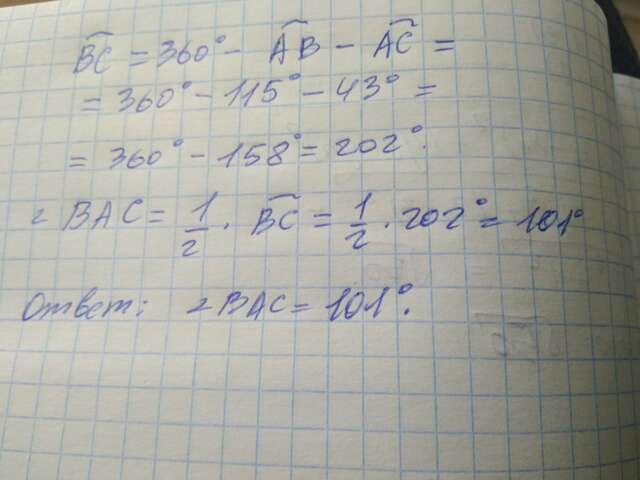 B͡C = 360° - A͡B - A͡C =
= 360° - 115° - 43° =
= 360° - 158° = 202°.
∠BAC = 1/2 · B͡C = 1/2 · 202° = 101°
Ответ: ∠BAC = 101°.